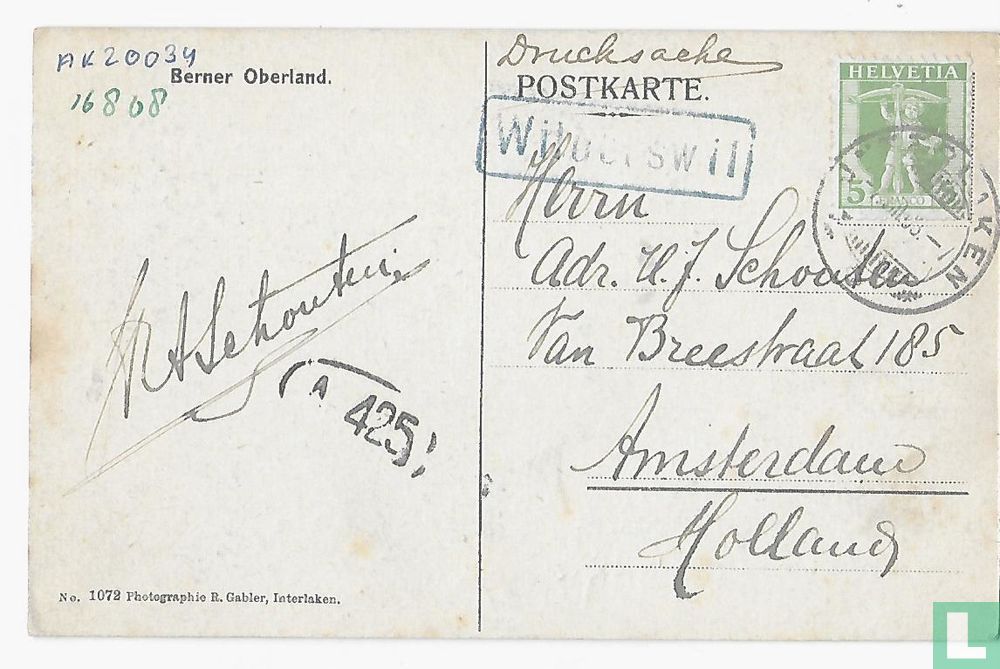 AK20034
Berner Oberland.
16808
RASchouten
A 425
No. 1072 Photographie R. Gabler, Interlaken.
Drucksache
POSTKARTE.
Wilderswil
HELVETIA
5
FRANCO
Herrn
Adr. H. J. Schouten
Van Breestraat 185
Amsterdam
Holland
L